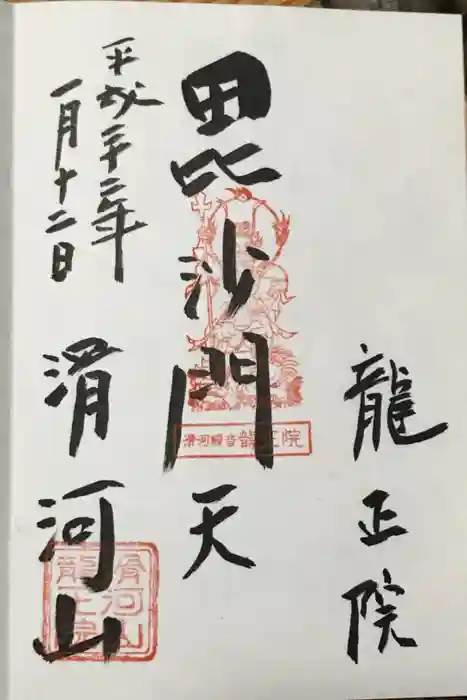 龍正院
毘沙門天
滑河観音龍正院
平成二十三年
一月十二日
滑河山
滑河山
龍正院